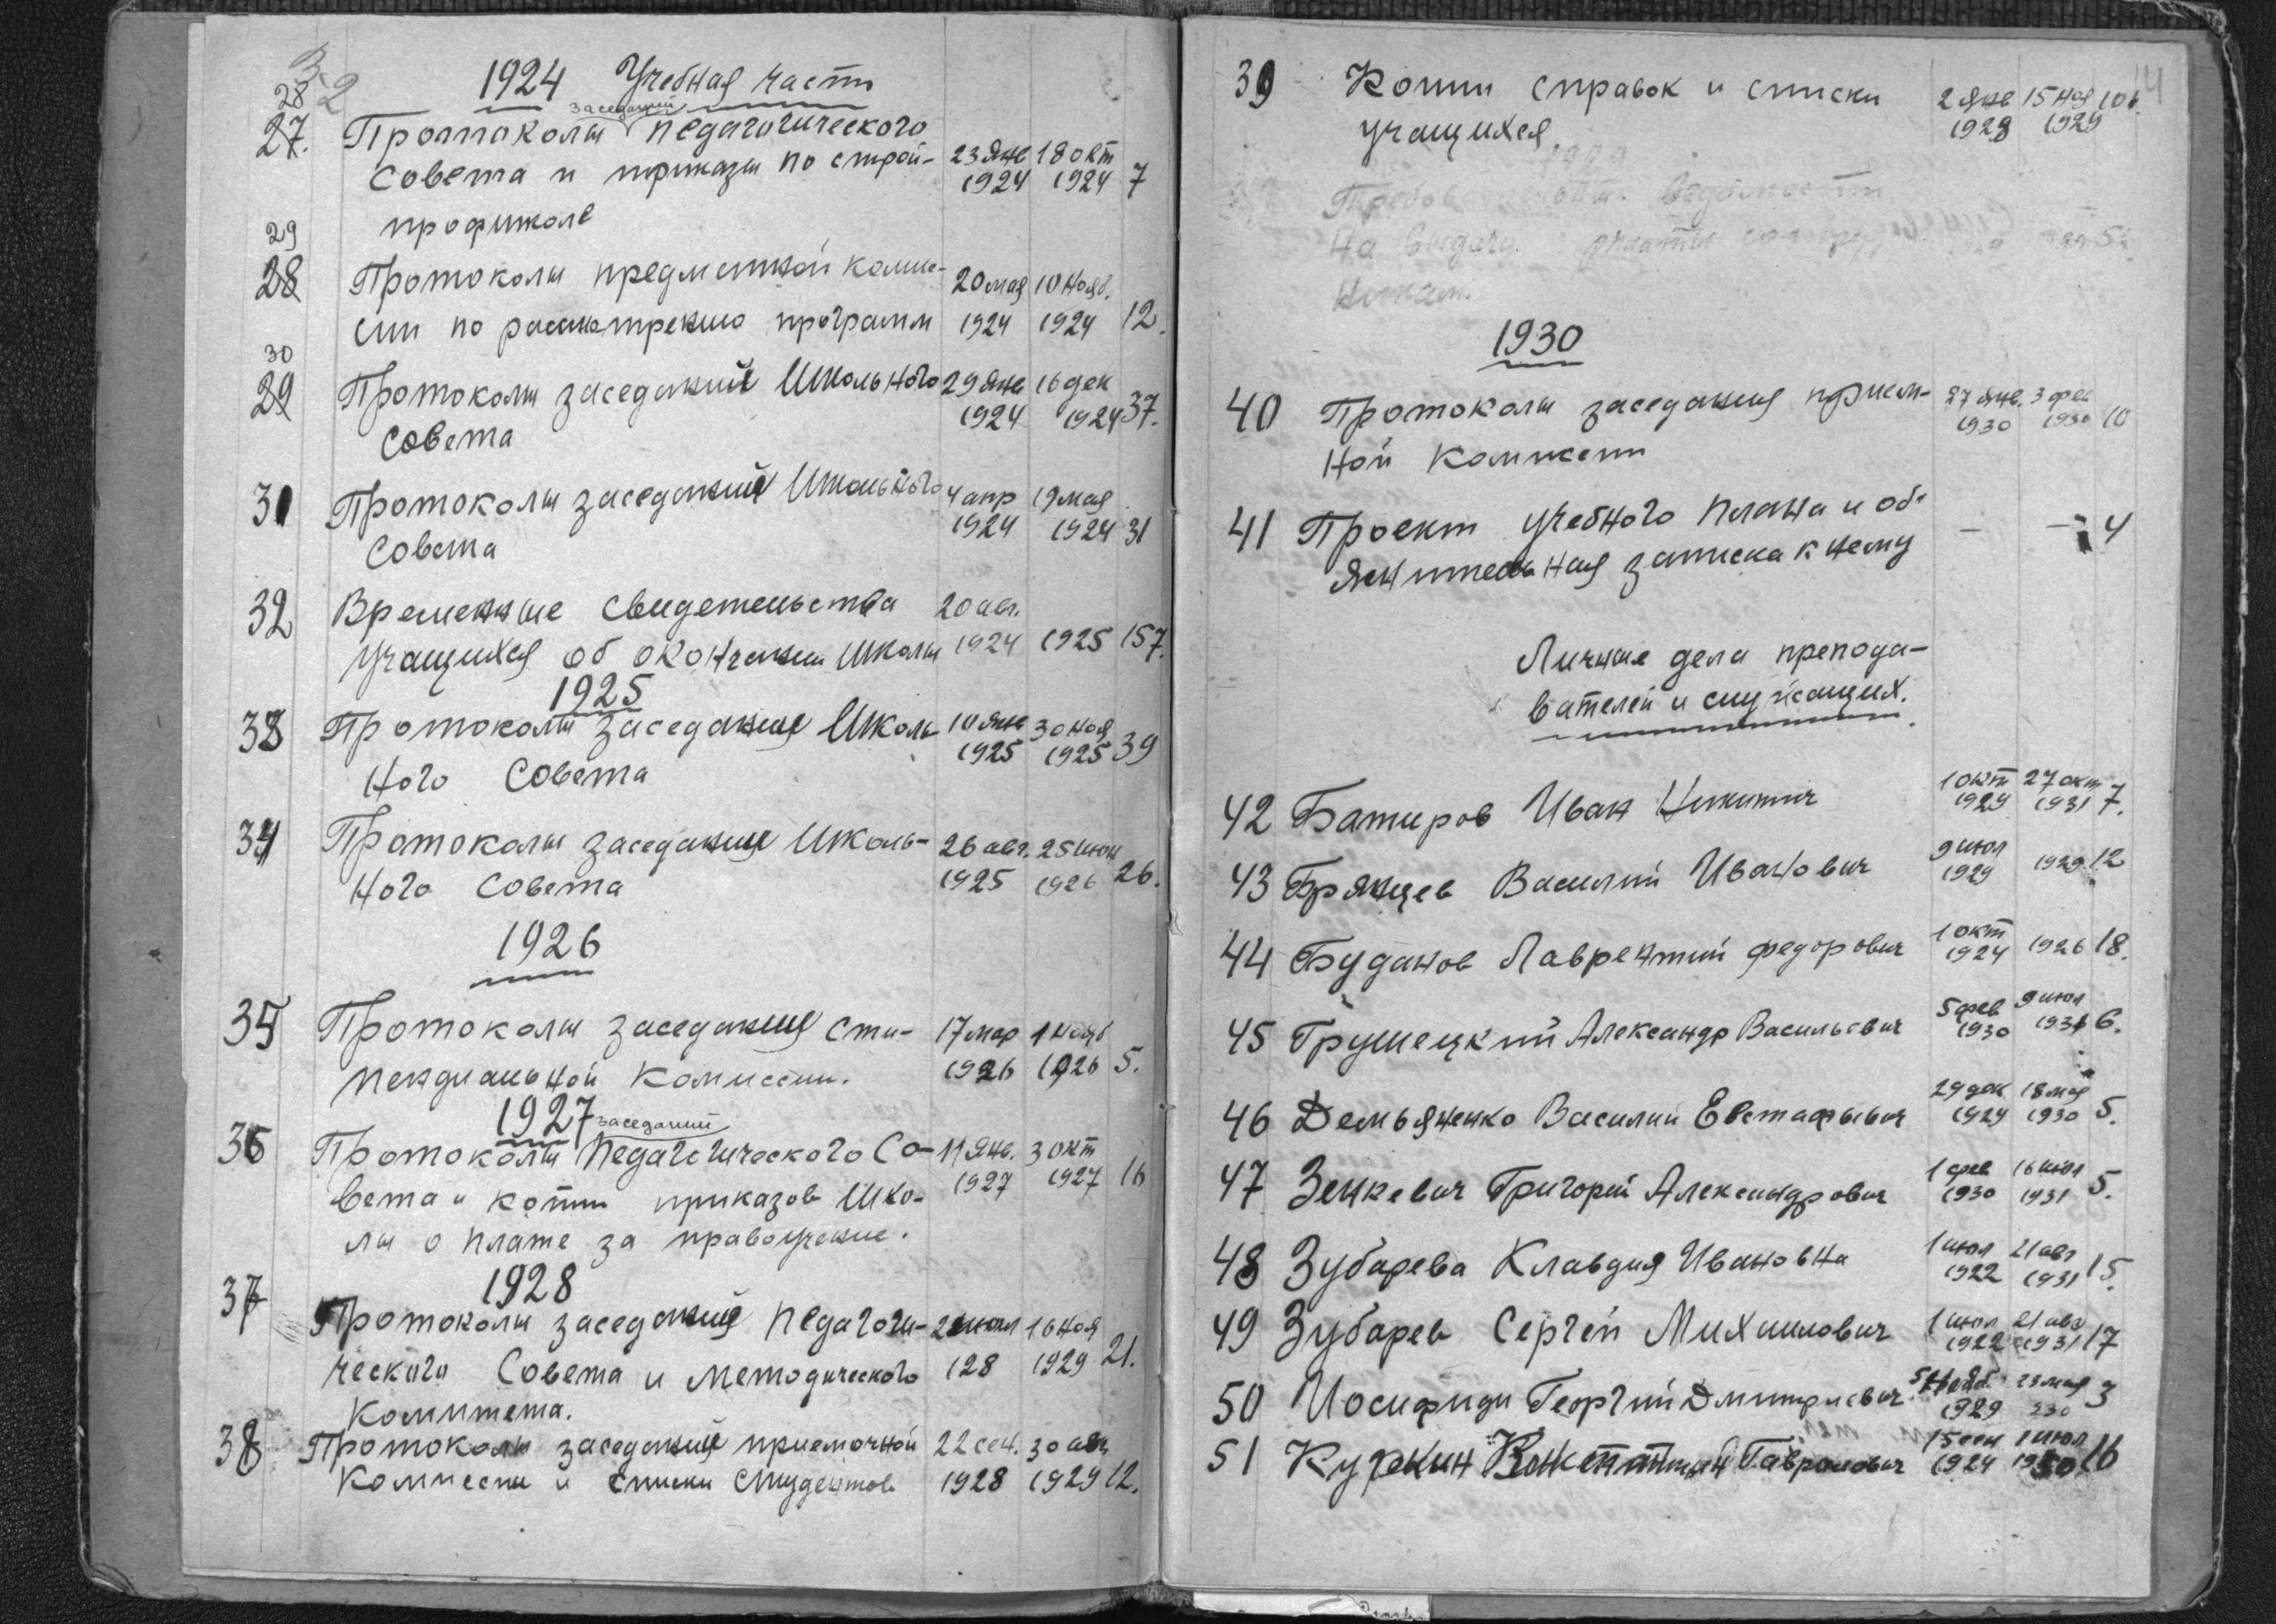 2
1924 Учебная часть
28
27. Протоколы заседаний педагогического
Совета и приказы по строй- 23 янв 18 окт
1924 1924 7
профшколе
29
28 Протоколы предметной комис- 20 мая 10 нояб.
сии по рассмотрению программ 1924 1924 12.
30
29 Протоколы заседаний Школьного 29 янв 16 дек
Совета 1924 1924 37.
31 Протоколы заседаний Школьного 4 апр 19 мая
Совета 1924 1924 31
32 Временные свидетельства 20 авг.
учащихся об окончании школы 1924 1925 157.
1925
33 Протоколы заседания Школь- 10 янв 30 ноя
ного Совета 1925 1925 39
34 Протоколы заседания Школь- 26 авг. 25 июн
ного Совета 1925 1926 26.
1926
35 Протоколы заседания сти- 17 мар 1 нояб
пендиальной комиссии. 1926 1926 5.
1927
36 Протоколы заседаний Педагогического Со- 11 янв. 3 окт
вета и копии приказов шко- 1927 1927 16
лы о плате за правоучение.
1928
37 Протоколы заседаний Педагоги- 2 июл 16 ноя
ческого Совета и методического 128 1929 21.
комитета.
38 Протоколы заседаний приемочной 22 сен. 30 авг
комиссии и списки студентов 1928 1929 12.
39 Копии справок и списки 2 янв 15 ноя 106.
учащихся 1928 1929
1929
ведомости
на выдачу
1930
40 Протоколы заседания прием- 27 янв. 3 фев
ной комиссии 1930 1930 10
41 Проект учебного плана и объ- — — 4
яснительная записка к нему
Личные дела препода-
вателей и служащих.
42 Батиров Иван Никитич 1 окт 27 окт
1929 1931 7.
43 Брянцев Василий Иванович 9 июл
1929 1929 12
44 Буданов Лаврентий Федорович 1 окт
1924 1926 18.
45 Грушецкий Александр Васильевич 5 фев 9 июл
1930 1931 6.
46 Демьяненко Василий Евстафьевич 29 дек 18 мая
1929 1930 5.
47 Зенкевич Григорий Александрович 1 фев 16 июл
1930 1931 5.
48 Зубарева Клавдия Ивановна 1 июл 21 авг
1922 1931 15.
49 Зубарев Сергей Михайлович 1 июл 21 авг
1922 1931 17
50 Иосифиди Георгий Дмитриевич 5 нояб. 23 мая
1929 230 3
51 Курекин Константин Гаврилович 15 сен 1 июл
1924 1930 16